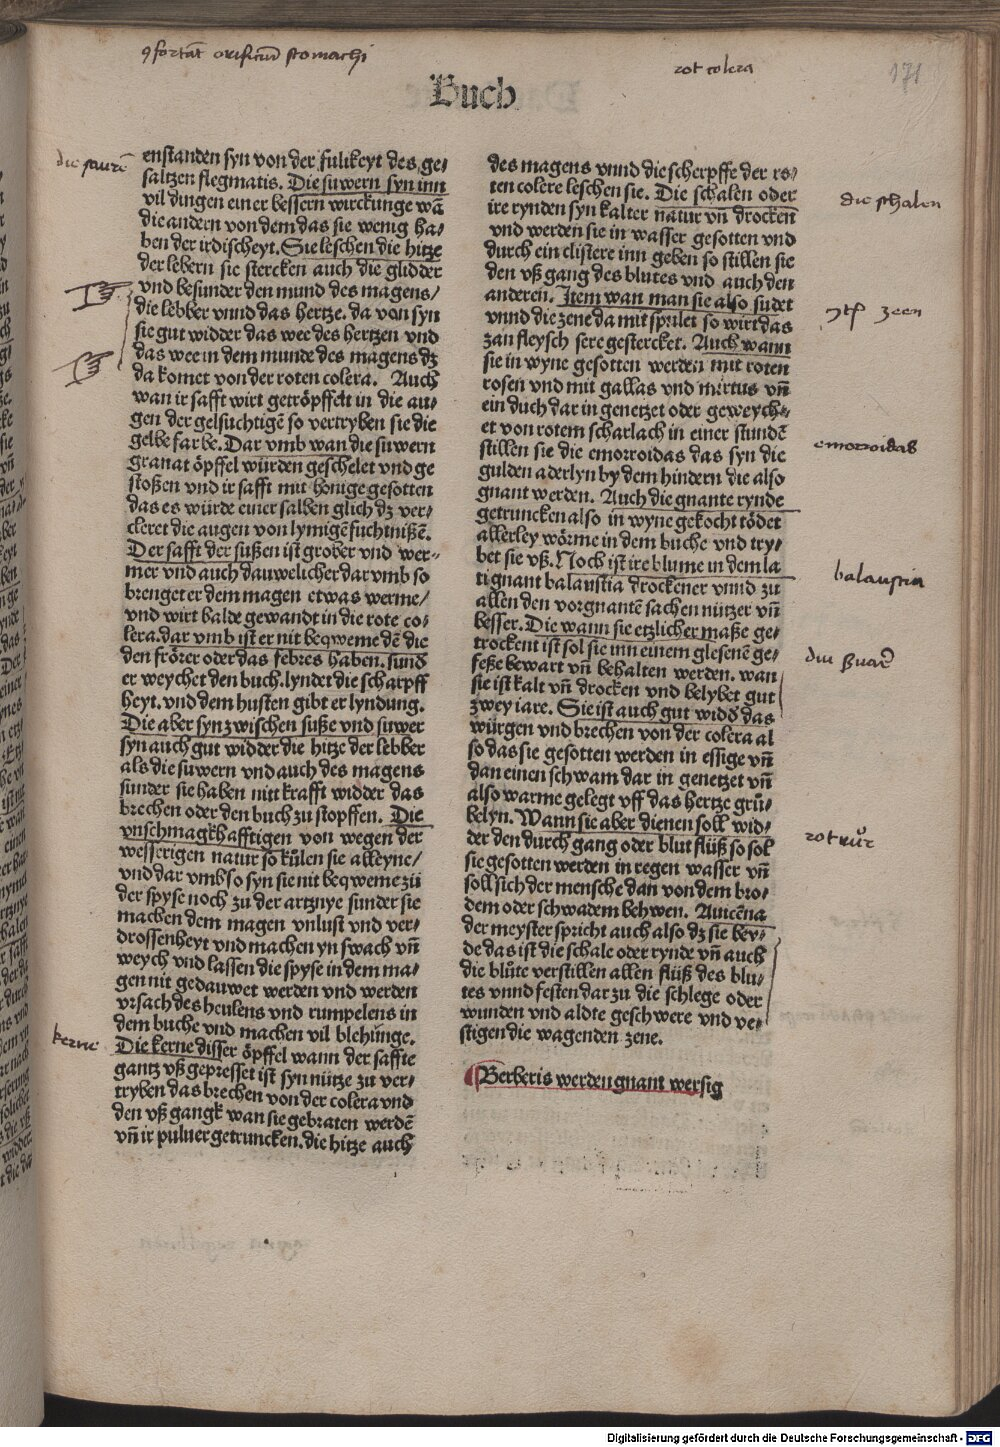 ꝯfortāt orificiū stomachi
rot colera
171
Buch
die saurē
enstanden syn von der fulikeyt des ge⸗
saltzen flegmatis. Die suwern syn inn
vil dingen einer bessern wirckunge wā
die andern von dem das sie wenig ha⸗
ben der irdischeyt. Sie leschen die hitze
der lebern sie stercken auch die glidder
vnd besunder den mund des magens/
die lebber vnnd das hertze. da von syn
sie gut widder das wee des hertzen vnd
das wee in dem munde des magens dz
da komet von der roten colera. Auch
wan ir safft wirt getröpffelt in die au⸗
gen der gelsuchtigē so vertryben sie die
gelbe farbe. Dar vmb wan die suwern
granat öpffel würden geschelet vnd ge
stoßen vnd ir safft mit honige gesotten
das es würde einer salben glich dz ver⸗
cleret die augen von lymigē fuchtnißē.
Der safft der sußen ist grober vnd wer⸗
mer vnd auch dauwelicher dar vmb so
brenget er dem magen etwas werme/
vnd wirt balde gewandt in die rote co⸗
lera. dar vmb ist er nit beqweme dē die
den frörer oder das febres haben. sund
er weychet den buch. lyndet die scharpff
heyt. vnd dem husten gibt er lyndung.
Die aber syn zwischen suße vnd suwer
syn auch gut widder die hitze der lebber
als die suwern vnd auch des magens
sunder sie haben nitt krafft widder das
brechen oder den buch zu stopffen. Die
vnschmagkhafftigen von wegen der
wesserigen natur so külen sie alleyne/
vnd dar vmb so syn sie nit beqweme zü
der spyse noch zu der artznye sunder sie
machen dem magen vnlust vnd ver⸗
drossenheyt vnd machen yn swach vñ
weych vnd lassen die spyse in dem ma⸗
gen nit gedauwet werden vnd werden
vrsach des heulens vnd rumpelens in
dem buche vnd machen vil blehunge.
kerne
Die kerne disser öpffel wann der saffte
gantz vß gepresset ist syn nütze zu ver⸗
tryben das brechen von der colera vnd
den vß gangk wan sie gebraten werdē
vñ ir puluer getruncken. die hitze auch
des magens vnnd die scherpffe der ro⸗
ten colere leschen sie. Die schalen oder
die schalen
ire rynden syn kalter natur vñ drocken
vnd werden sie in wasser gesotten vnd
durch ein clistere inn geben so stillen sie
den vß gang des blutes vnd auch den
anderen. Item wan man sie also sudet
zeen
vnnd die zene da mit spulet so wirt das
zan fleysch sere gestercket. Auch wann
sie in wyne gesotten werden mit roten
rosen vnd mit gallas vnd mirtus vñ
ein duch dar in genetzet oder geweych⸗
et von rotem scharlach in einer stundē
stillen sie die emorroidas das syn die
emorroidas
gulden aderlyn by dem hindern die also
gnant werden. Auch die gnante rynde
getruncken also in wyne gekocht tödet
allerley wörme in dem buche vnd try⸗
bet sie vß. Noch ist ire blume in dem la
tignant balaustia drockener vnnd zu
balaustia
allen den vorgnantē sachen nützer vñ
besser. Die wann sie etzlicher maße ge⸗
trockent ist sol sie inn einem glesenē ge⸗
feße bewart vñ behalten werden. wan
sie ist kalt vñ drocken vnd belybet gut
zwey iare. Sie ist auch gut widd̕ das
würgen vnd brechen von der colera al
so das sie gesotten werden in essige vñ
dan einen schwam dar in genetzet vñ
also warme gelegt vff das hertze grü⸗
belyn. Wann sie aber dienen soll wid⸗
der den durch gang oder blut flüß so sol
rot rur
sie gesotten werden in regen wasser vñ
soll sich der mensche dan von dem bro⸗
dem oder schwadem behwen. Auicēna
der meyster spricht auch also dz sie bey⸗
de das ist die schale oder rynde vñ auch
die blüte verstillen allen flüß des blu⸗
tes vnnd festen dar zu die schlege oder
wunden vnd aldte geschwere vnd ve⸗
stigen die wagenden zene.
Berberis werden gnant wersig
Digitalisierung gefördert durch die Deutsche Forschungsgemeinschaft - DFG